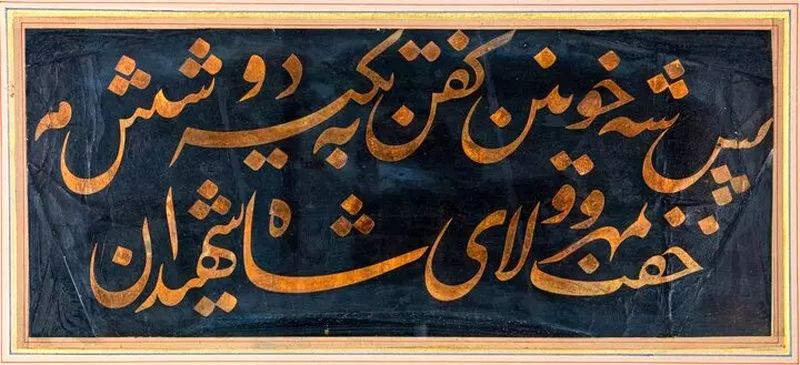 پس شه خونین کفن به تکبیر دو شش مه
خفت مهر و ولای شاه شهیدان